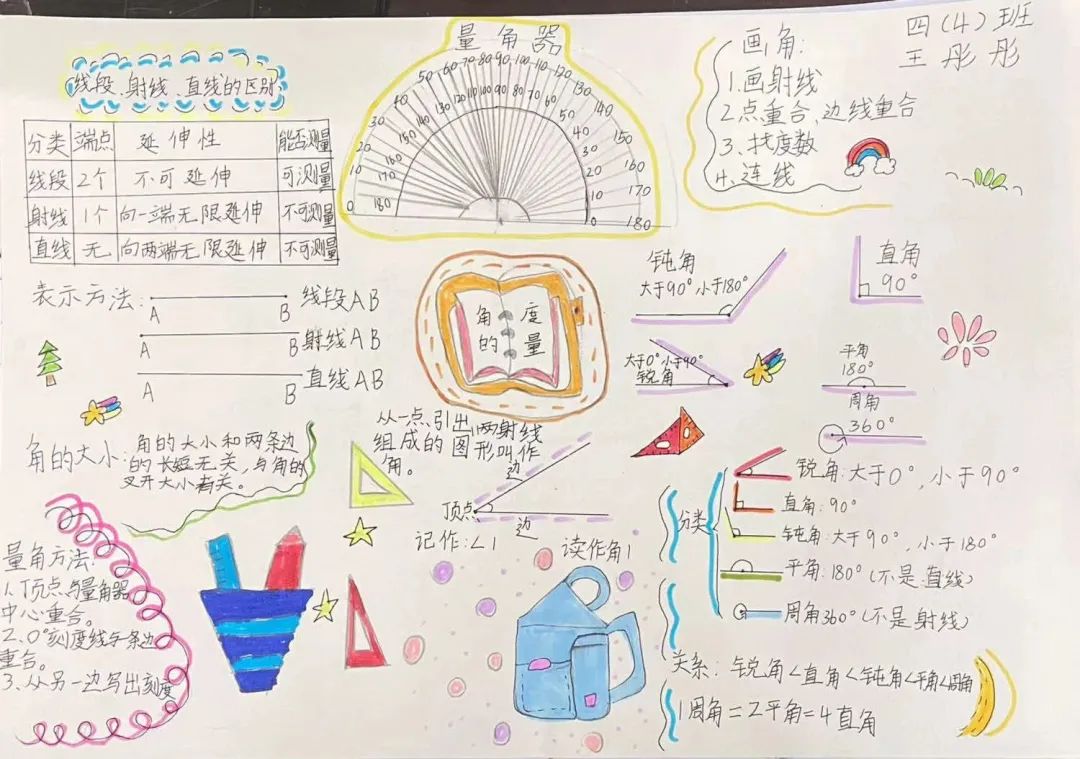 四(4)班
王彤彤
线段、射线、直线的区别
分类 端点 延伸性 能否测量
线段 2个 不可延伸 可测量
射线 1个 向一端无限延伸 不可测量
直线 无 向两端无限延伸 不可测量
表示方法:
A B 线段AB
A B 射线AB
A B 直线AB
角的大小:角的大小和两条边
的长短无关,与角的
叉开大小有关。
量角方法:
1、顶点与量角器
中心重合。
2、0°刻度线与一条边
重合。
3、从另一边写出刻度
量角器
0 10 20 30 40 50 60 70 80 90 100 110 120 130 140 150 160 170 180
180 170 160 150 140 130 120 110 100 90 80 70 60 50 40 30 20 10 0
角的
度量
从一点引出两射线
组成的图形叫作
角。
边
顶点
边
记作:∠1 读作角1
画角:
1.画射线
2.点重合、边线重合
3、找度数
4、连线
钝角
大于90°小于180°
直角
90°
大于0°小于90°
锐角
平角
180°
周角
360°
分类
锐角:大于0°,小于90°
直角:90°
钝角:大于90°,小于180°
平角:180°(不是直线)
周角360°(不是射线)
关系:锐角<直角<钝角<平角<周角
1周角=2平角=4直角